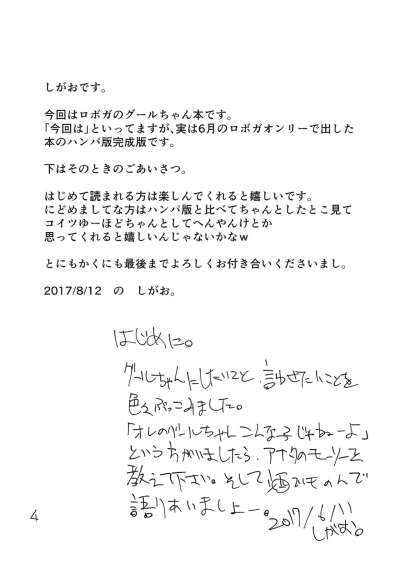 しがおです。
今回はロボガのグールちゃん本です。
「今回は」といってますが、実は6月のロボガオンリーで出した
本のハンパ版完成版です。
下はそのときのごあいさつ。
はじめて読まれる方は楽しんでくれると嬉しいです。
にどめましてな方はハンパ版と比べてちゃんとしたとこ見て
コイツゆーほどちゃんとしてへんやんけとか
思ってくれると嬉しいんじゃないかなｗ
とにもかくにも最後までよろしくお付き合いくださいまし。
2017/8/12　の　しがお。
はじめに。
グールちゃんにしたいこと、言わせたいことを
色々ぶっこみました。
「オレのグールちゃんこんな子じゃねーよ」
という方がいましたら、アナタのモーソーを
教えて下さい。そして酒のものんで
語りあいましょー。
2017/6/11
しがお。
4